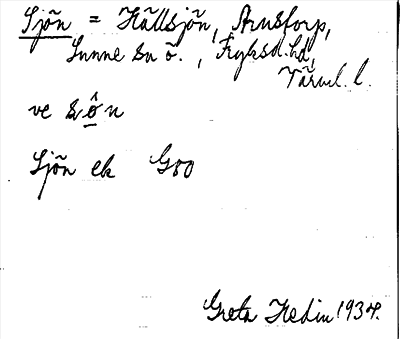 Sjön = Hällsjön, Arnstorp,
Sunne sn ö., Fryksd. hd,
Värml. l.
ve sön
Sjön ek Goo
Greta Hedin 1934.